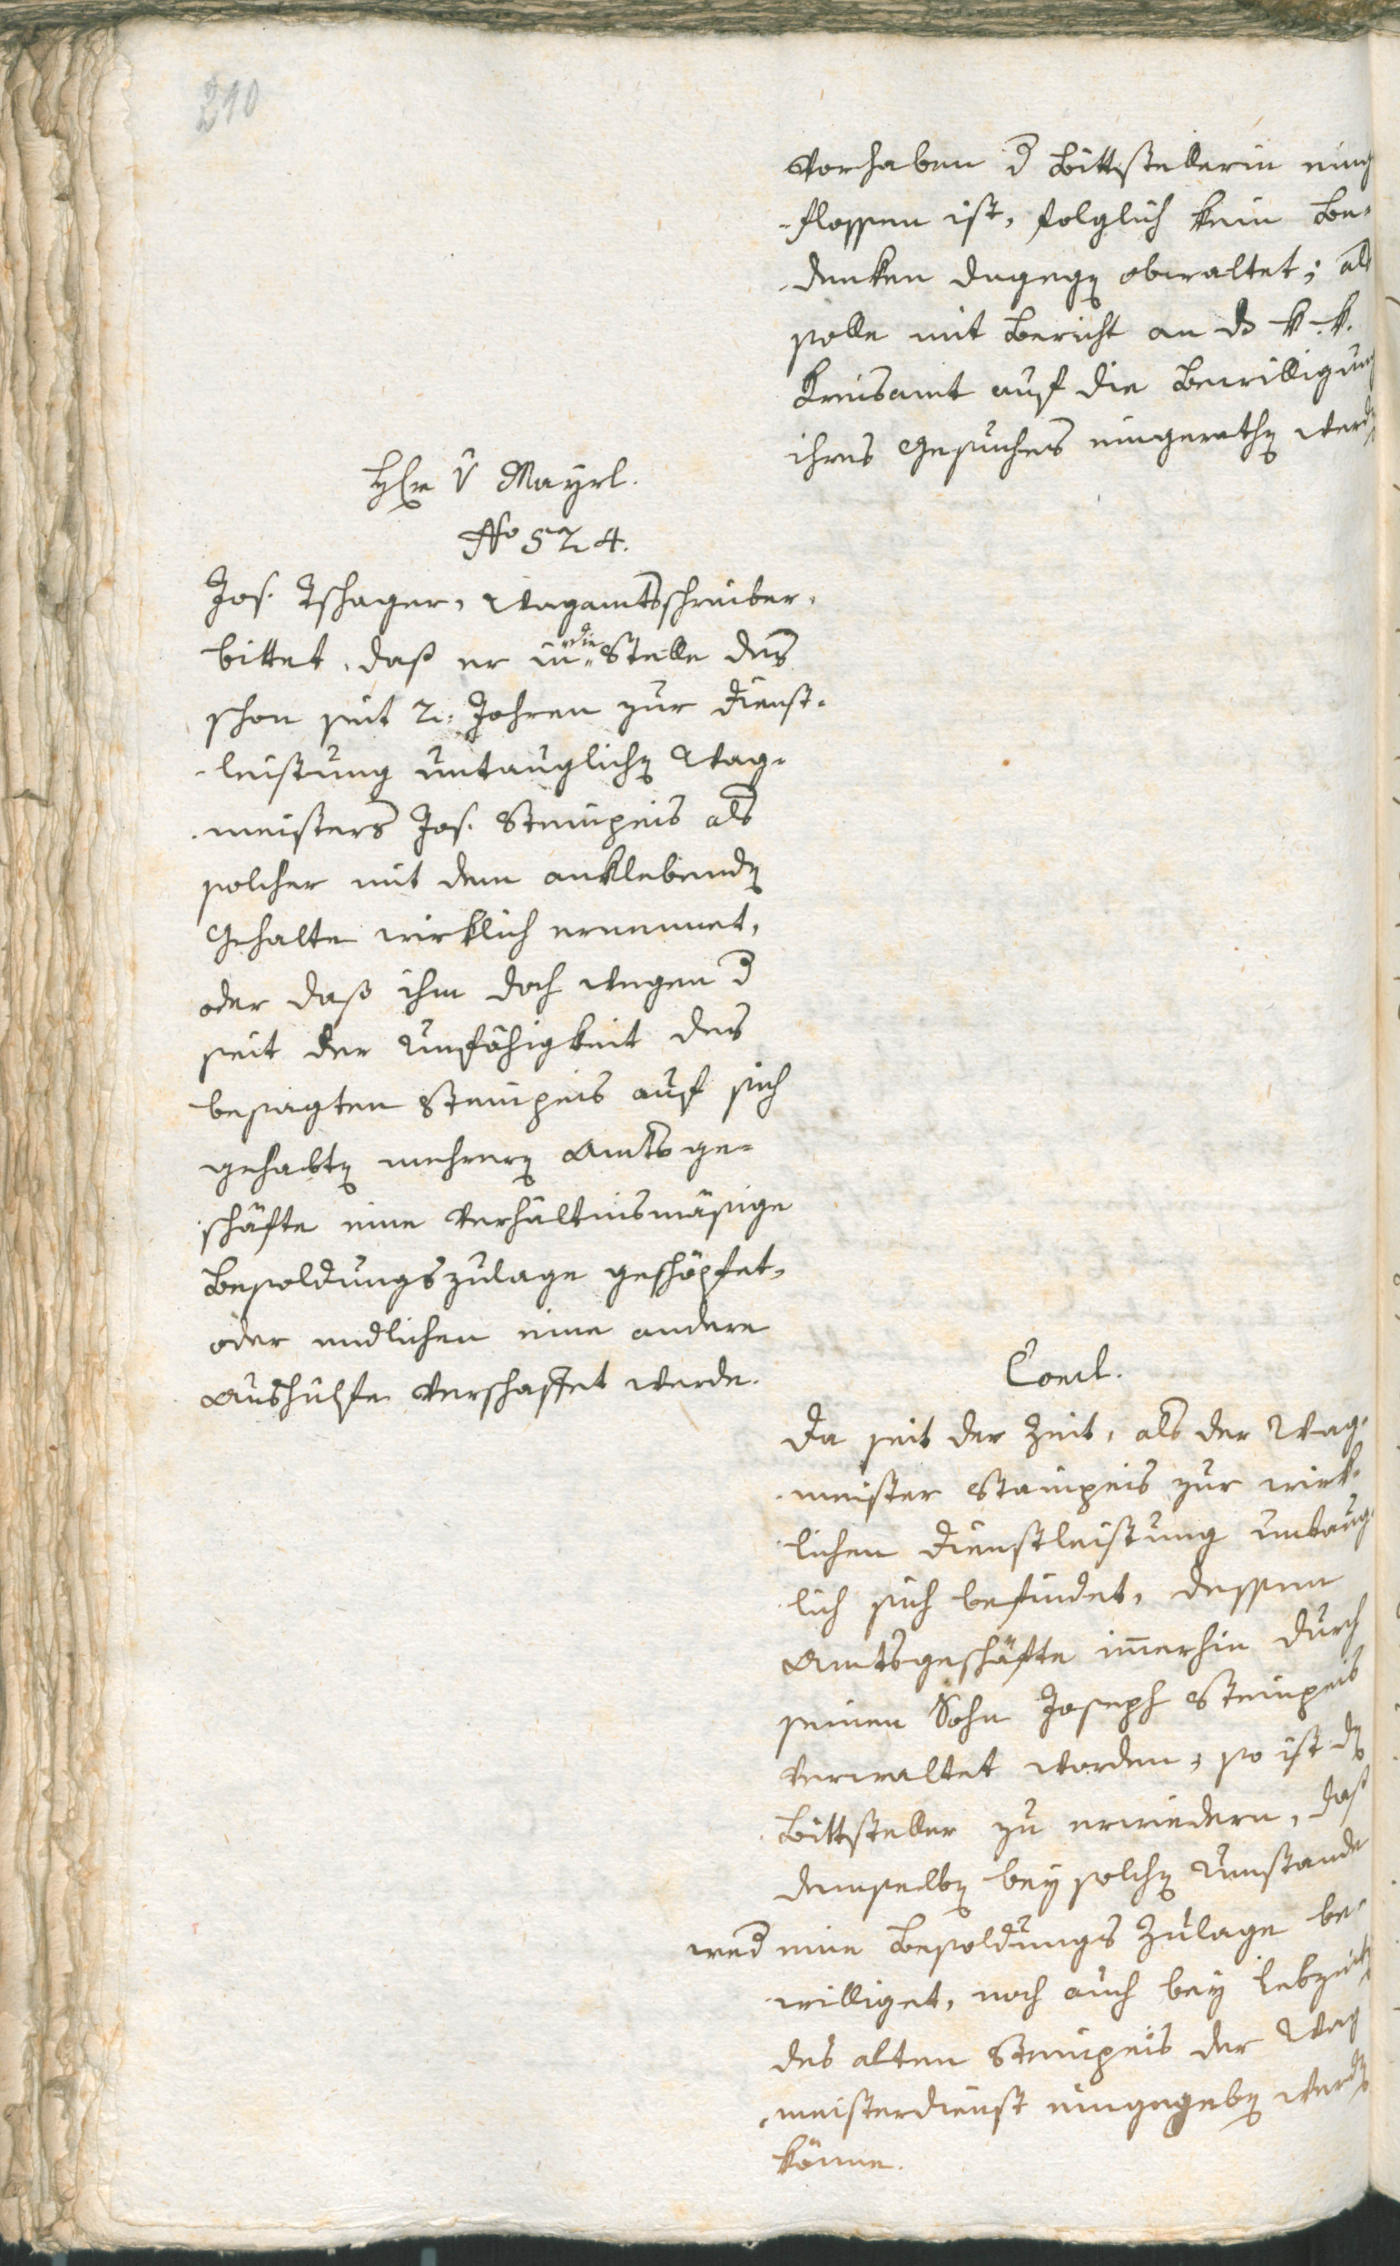 210
Vorhaben d Bittstellerin einge
flossen ist, folglich kein Be-
denken dagegen obwaltet; als
solle mit Bericht an ds k. k.
Kreisamt auf die Bewilligung
ihres Gesuches eingerathen werden
Hr v Mayrl.
No 524.
Jos. Tschager, Wagamtsschreiber,
bittet, daß er in die Stelle des
schon seit 2. Jahren zur Dienst-
leistung untauglichen Wag-
meisters Jos. Steinpeis als
solcher mit dem anklebenden
Gehalte wirklich ernennet,
oder daß ihm doch wegen d
seit der Unfähigkeit des
besagten Steinpeis auf sich
gehabten mehreren Amtsge-
schäfte eine verhältnismäsige
Besoldungszulage geschöpfet,
oder endlichen eine andere
Aushülfe verschaffet werde.
Concl.
Da seit der Zeit, als der Wag-
meister Stainpeis zur wirk-
lichen Dienstleistung untaug-
lich sich befindet, dessen
Amtsgeschäfte imerhin durch
seinen Sohn Joseph Steinpeis
verwaltet worden; so ist dem
Bittsteller zu erwiedern, daß
demselben bey solchen Umstande
wed eine Besoldungs Zulage be-
williget, noch auch bey Lebzeiten
des alten Steinpeis der Wag
meisterdienst eingegeben werden
könne.